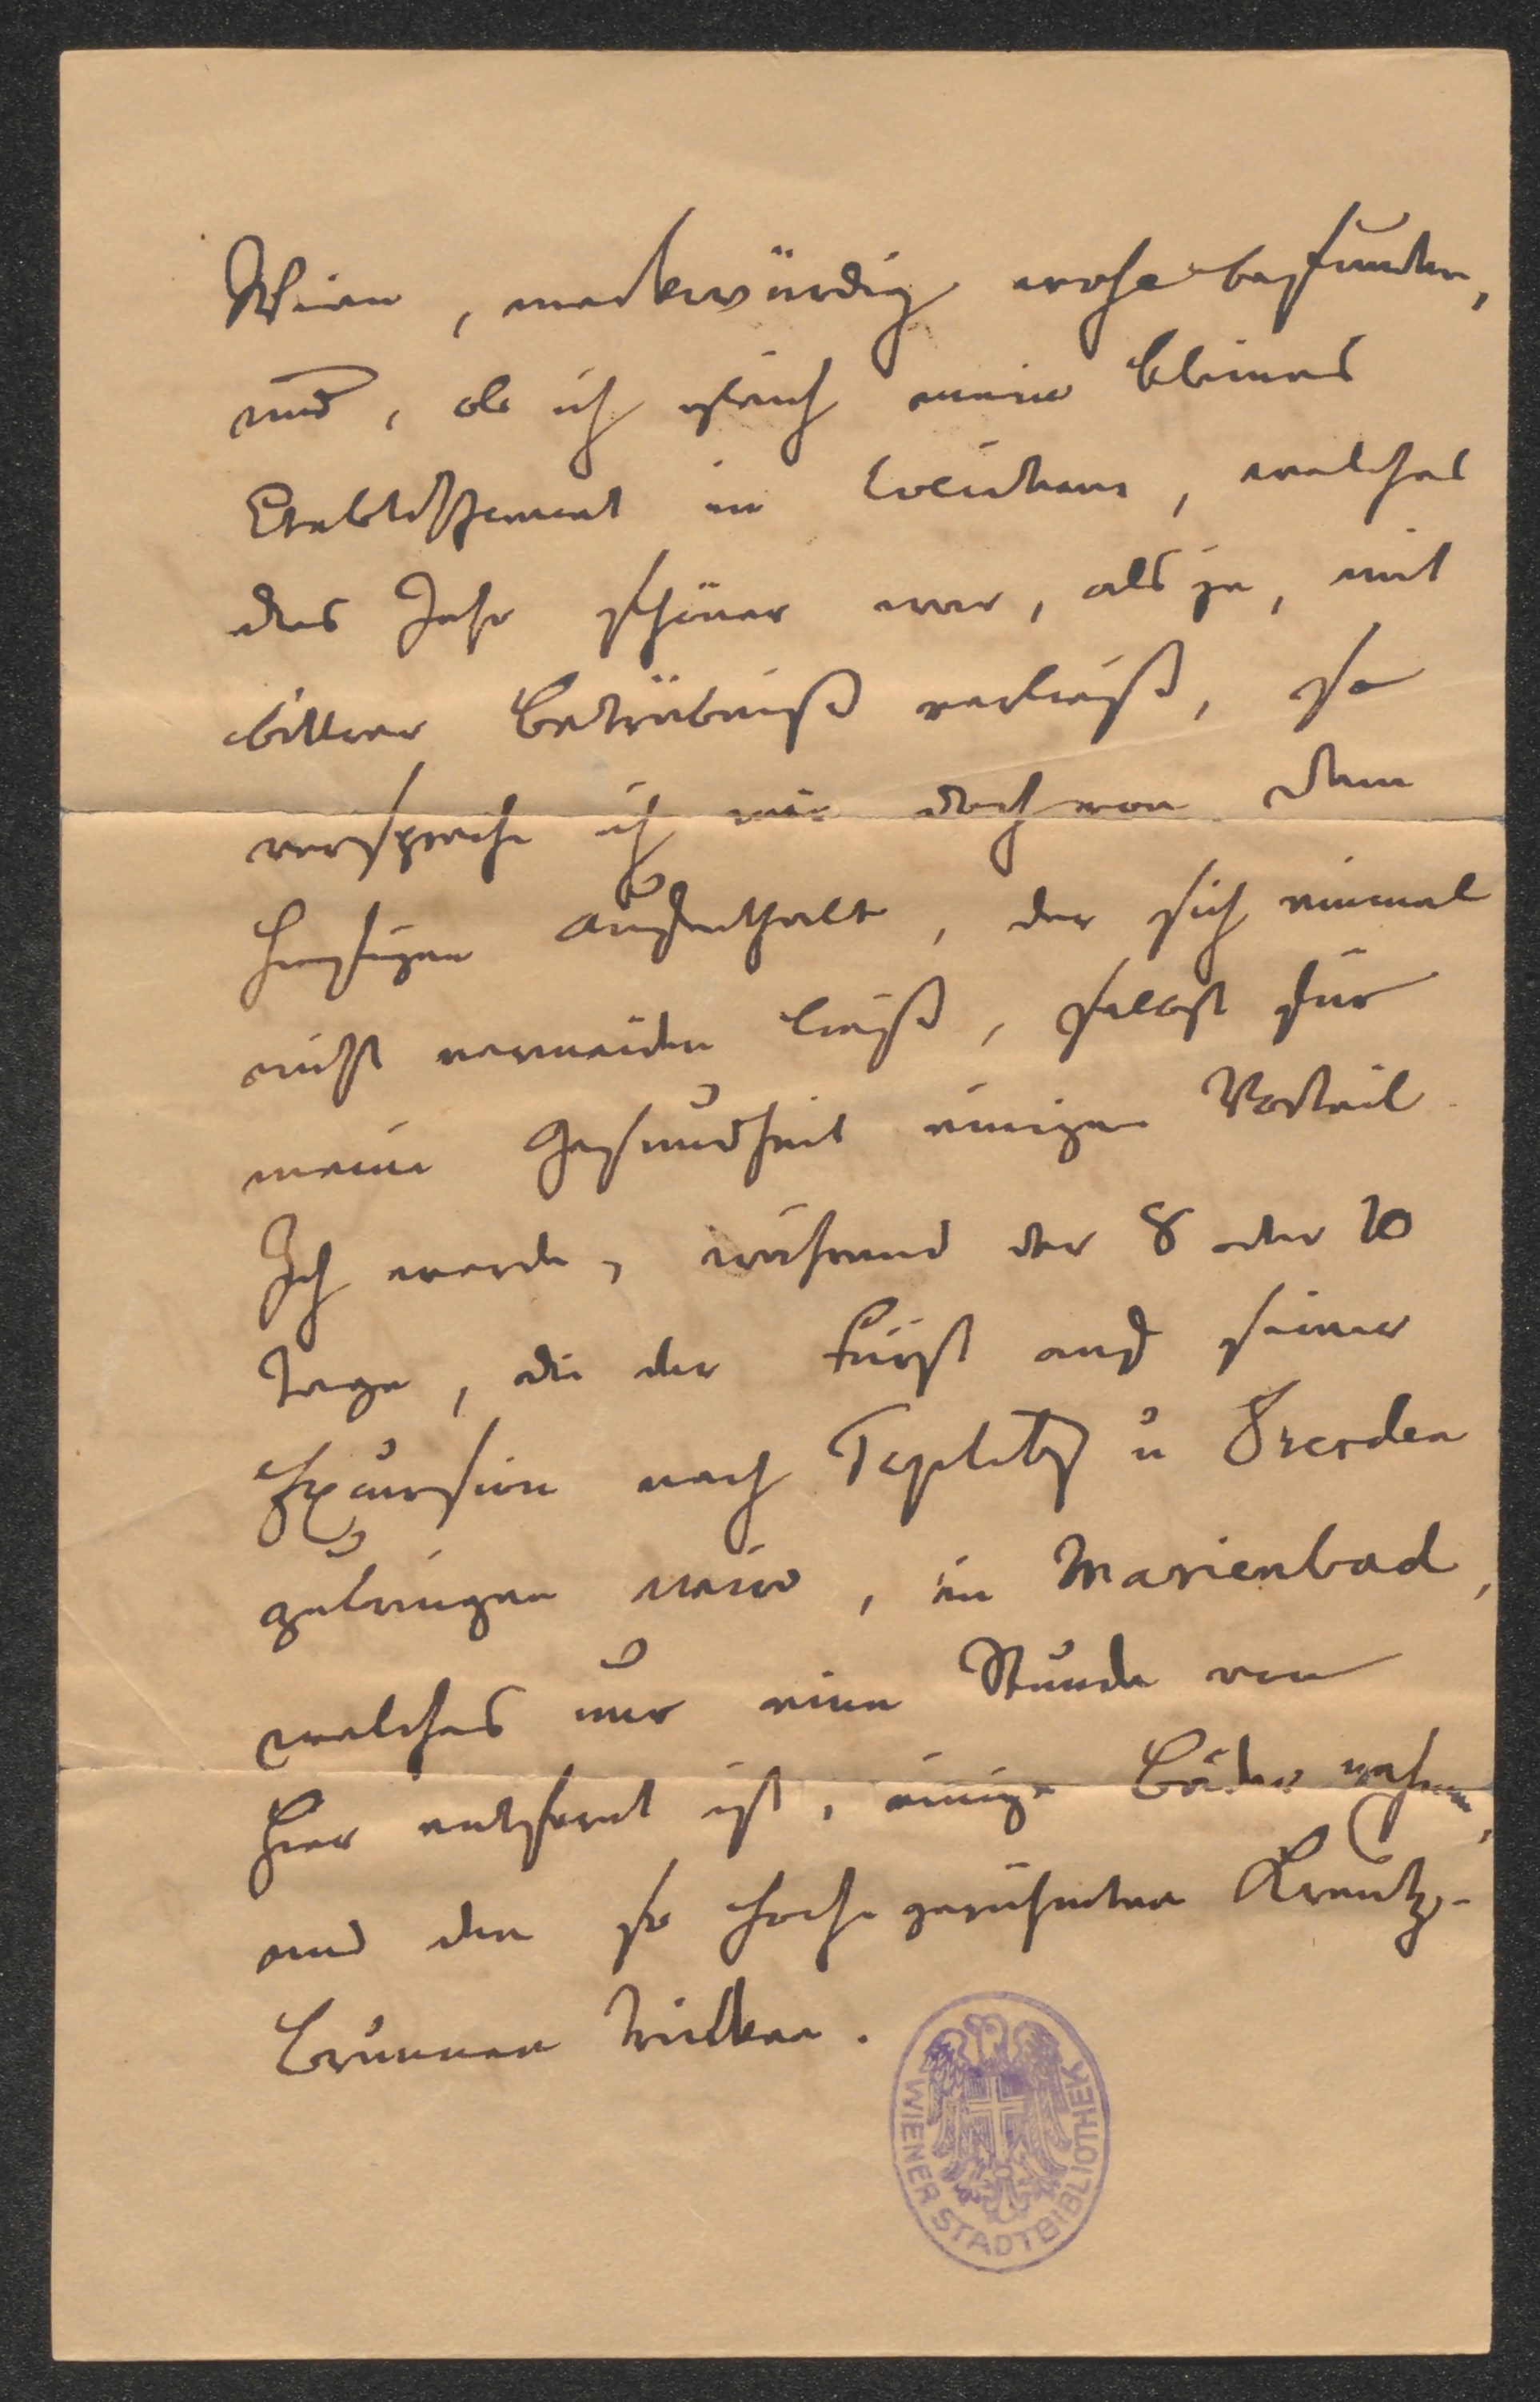 Wien, merkwürdig wohl befunden,
und, ob ich gleich mein kleines
Etablissement in , welches
das Jahr schöner war, als je, mit
bittrer Betrübniß verließ, so
verspreche ich mir doch von dem
hiesigen Aufenthalt, der sich einmal
nicht vermeiden ließ, selbst für
meine Gesundheit einigen Vortheil.
Ich werde, während der 8 oder 10
Tage, die der Fürst auf seiner
Excursion nach Teplitz u Dresden
zubringen wird, in Marienbad,
welches nur eine Stunde von
hier entfernt ist, einige Bäder nehmen,
und den so hoch gerühmten Kreutz-
brunnen trinken.
WIENER STADTBIBLIOTHEK